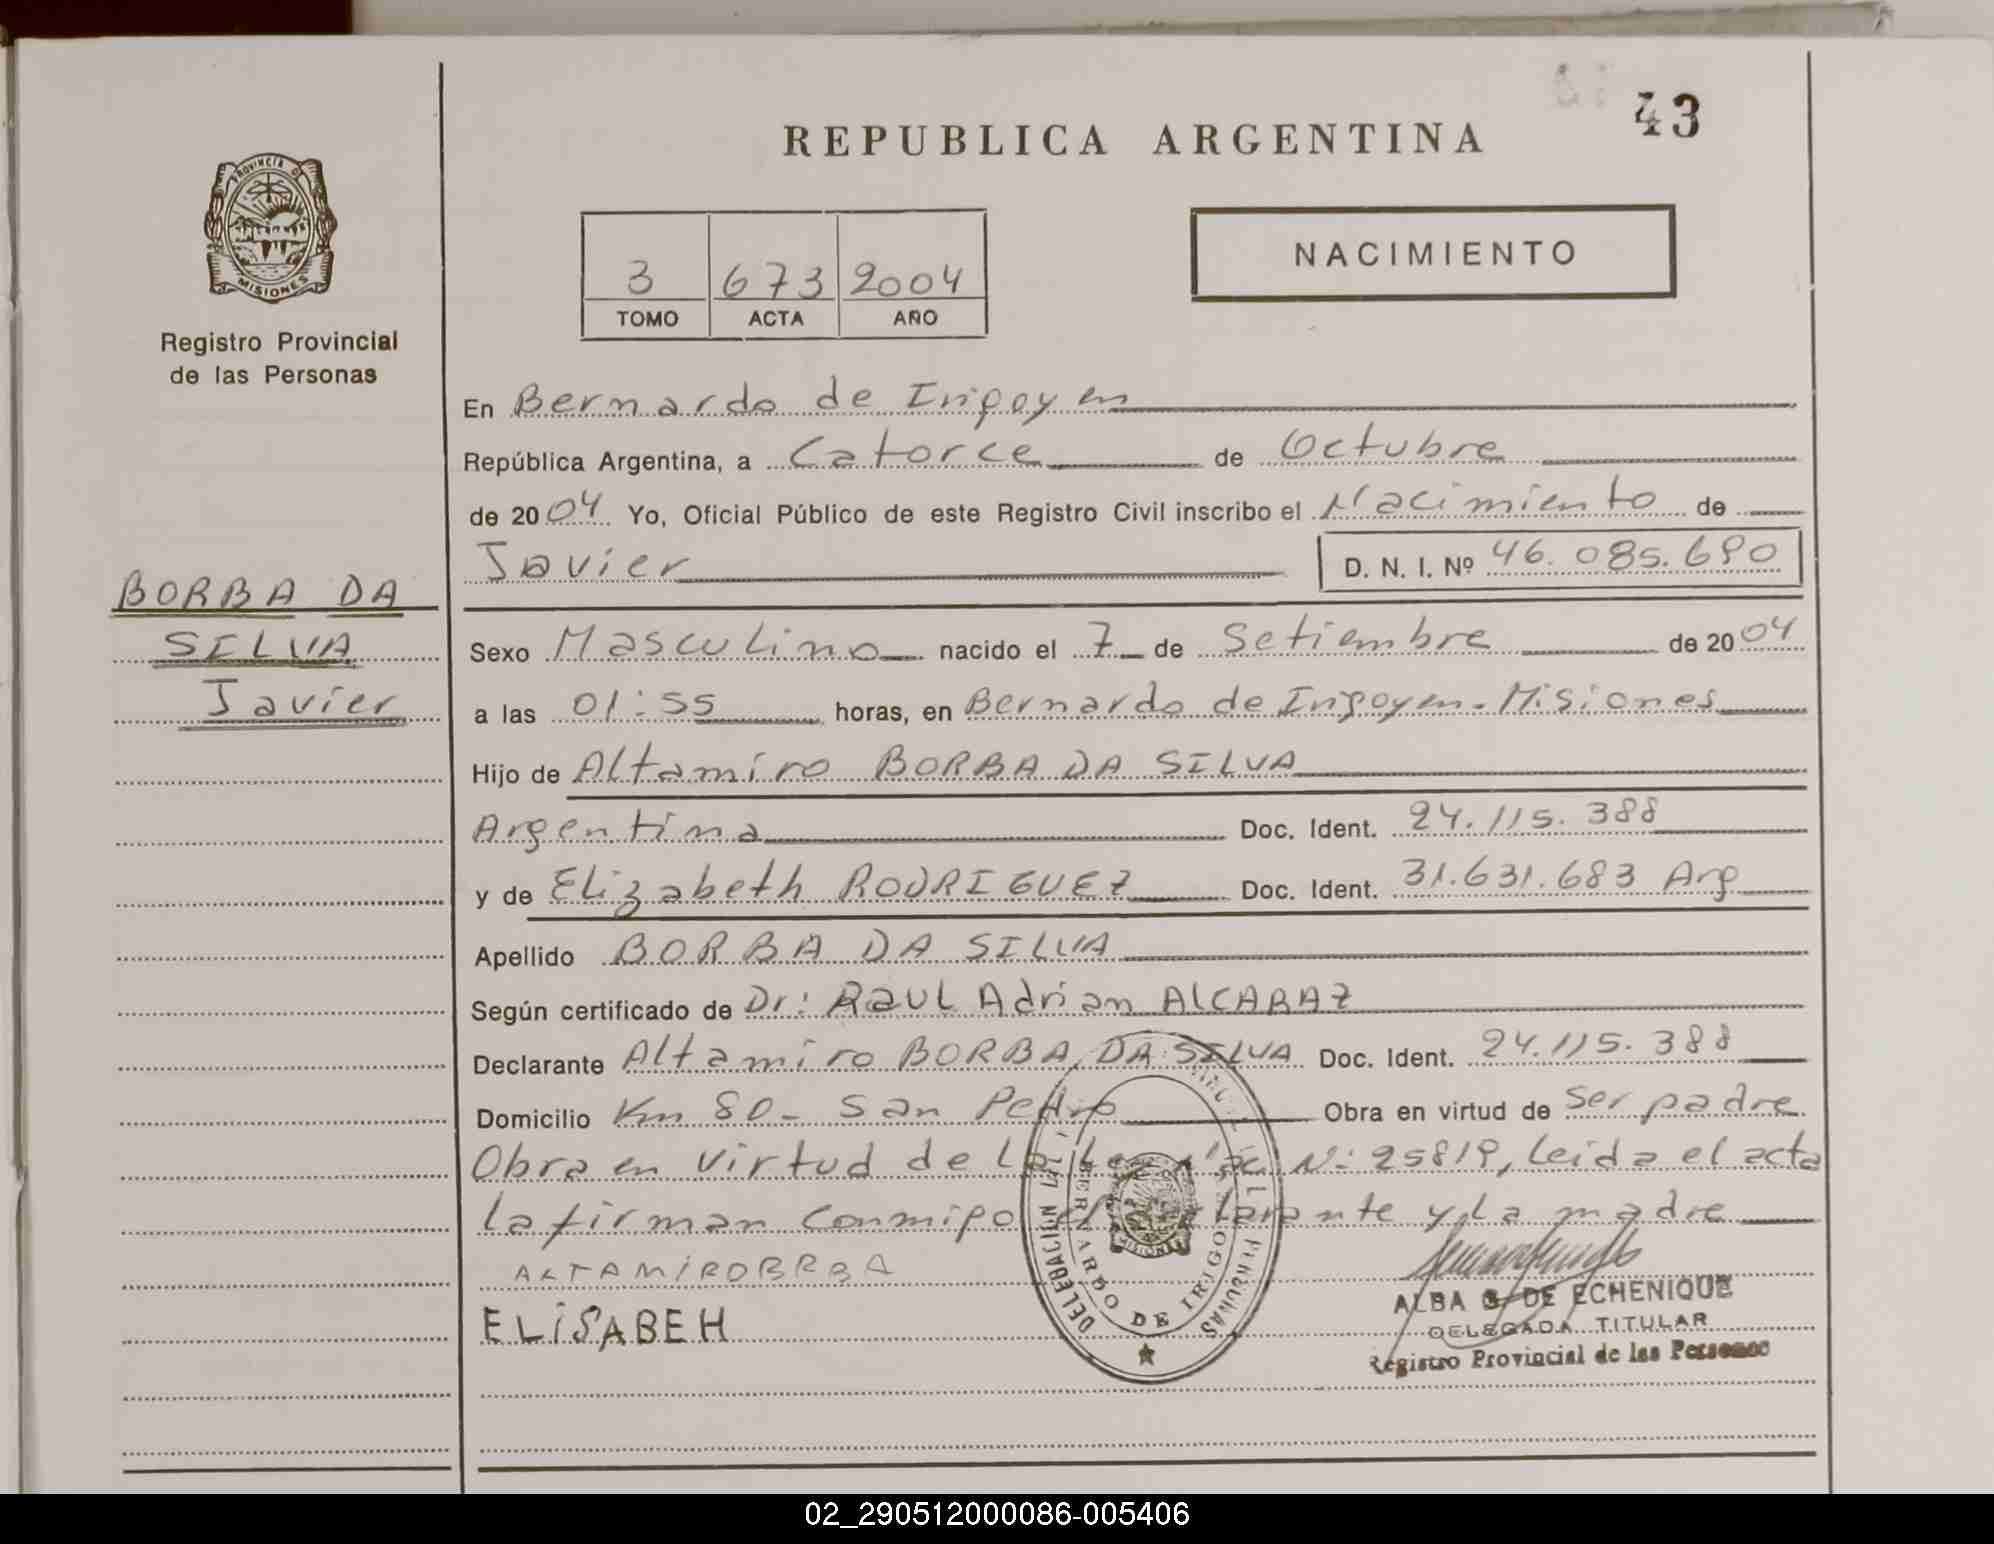 43
REPUBLICA ARGENTINA
PROVINCIA DE
MISIONES
Registro Provincial
de las Personas
NACIMIENTO
3 673 2004
TOMO ACTA AÑO
En Bernardo de Irigoyen
República Argentina, a Catorce de Octubre
de 2004 Yo, Oficial Público de este Registro Civil inscribo el Nacimiento de
Javier D. N. I. Nº 46.085.690
BORBA DA
SILVA
Javier
Sexo Masculino nacido el 7 de Setiembre de 2004
a las 01:55 horas, en Bernardo de Irigoyen - Misiones
Hijo de Altamiro BORBA DA SILVA
Argentina Doc. Ident. 24.115.388
y de Elizabeth RODRIGUEZ Doc. Ident. 31.631.683 Arg
Apellido BORBA DA SILVA
Según certificado de Dr: RAUL Adrian ALCARAZ
Declarante Altamiro BORBA DA SILVA Doc. Ident. 24.115.388
Domicilio Km 80 - San Pedro Obra en virtud de Ser padre
Obra en virtud de La Ley Nac N: 25819, Leida el acta
La firman conmigo el declarante y La madre
ALTAMIROBRBA
ELISABEH
DELEGACION
BERNARDO DE IRIGOYEN
ALBA G. DE ECHENIQUE
DELEGADA TITULAR
Registro Provincial de las Personas
02_290512000086-005406